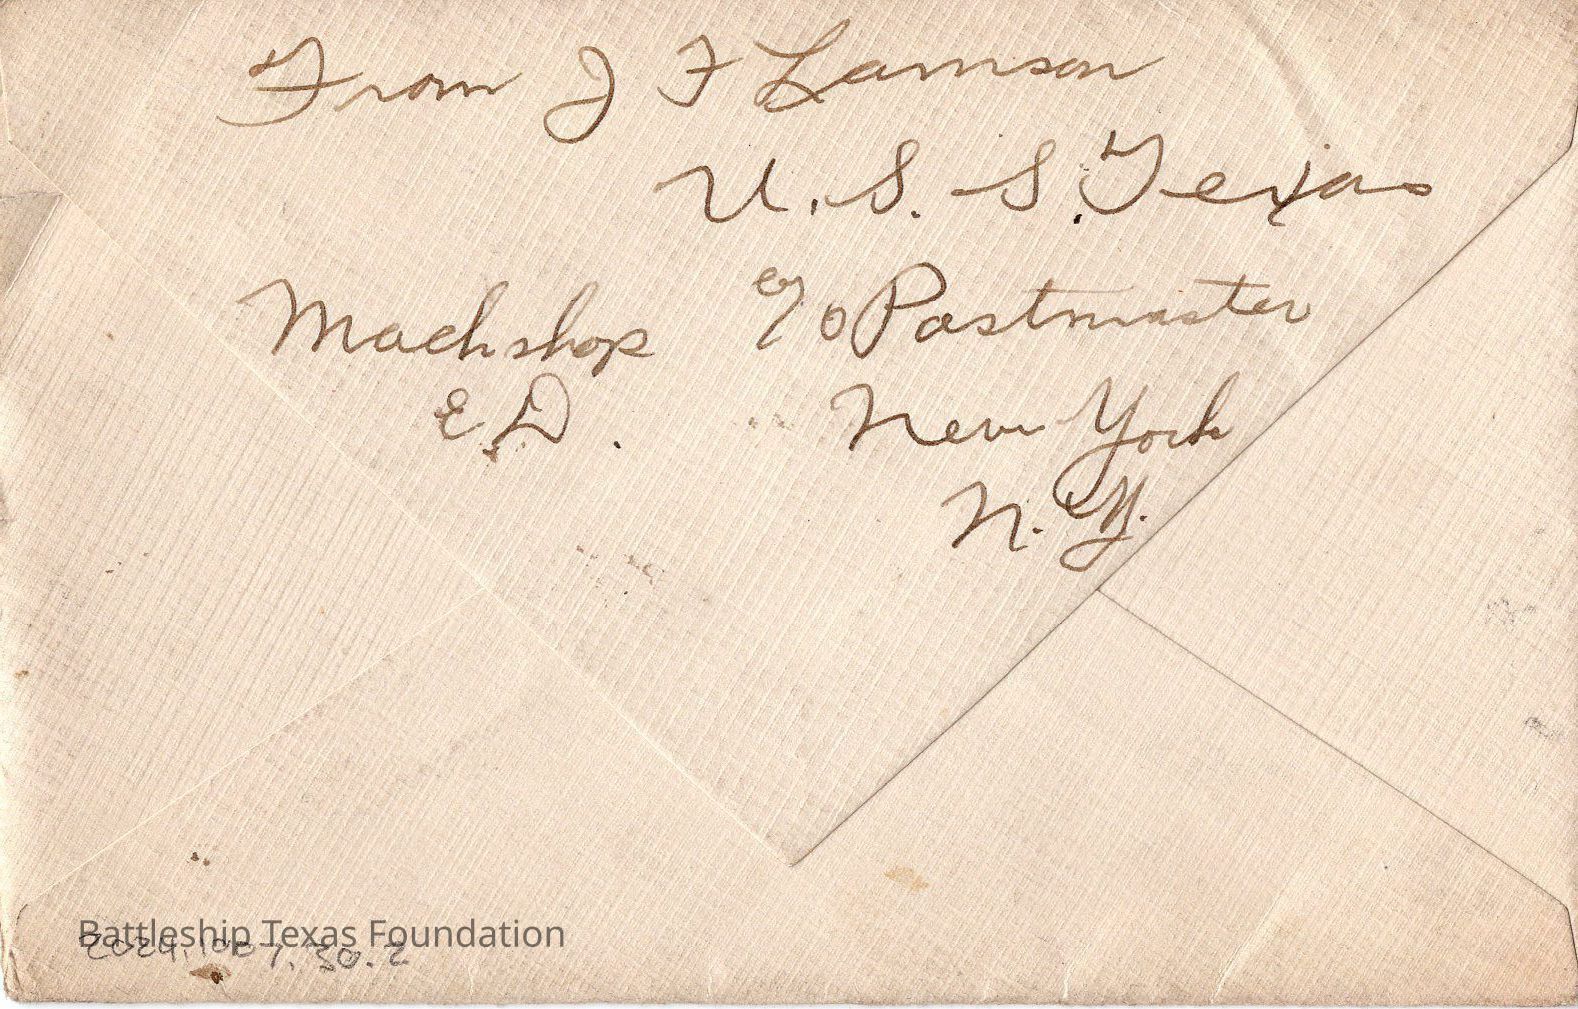 From J F Lamson
U.S.S. Texas
Machshop c/o Postmaster
E.D. New York
N.Y.
Battleship Texas Foundation
2024.1007.30.2